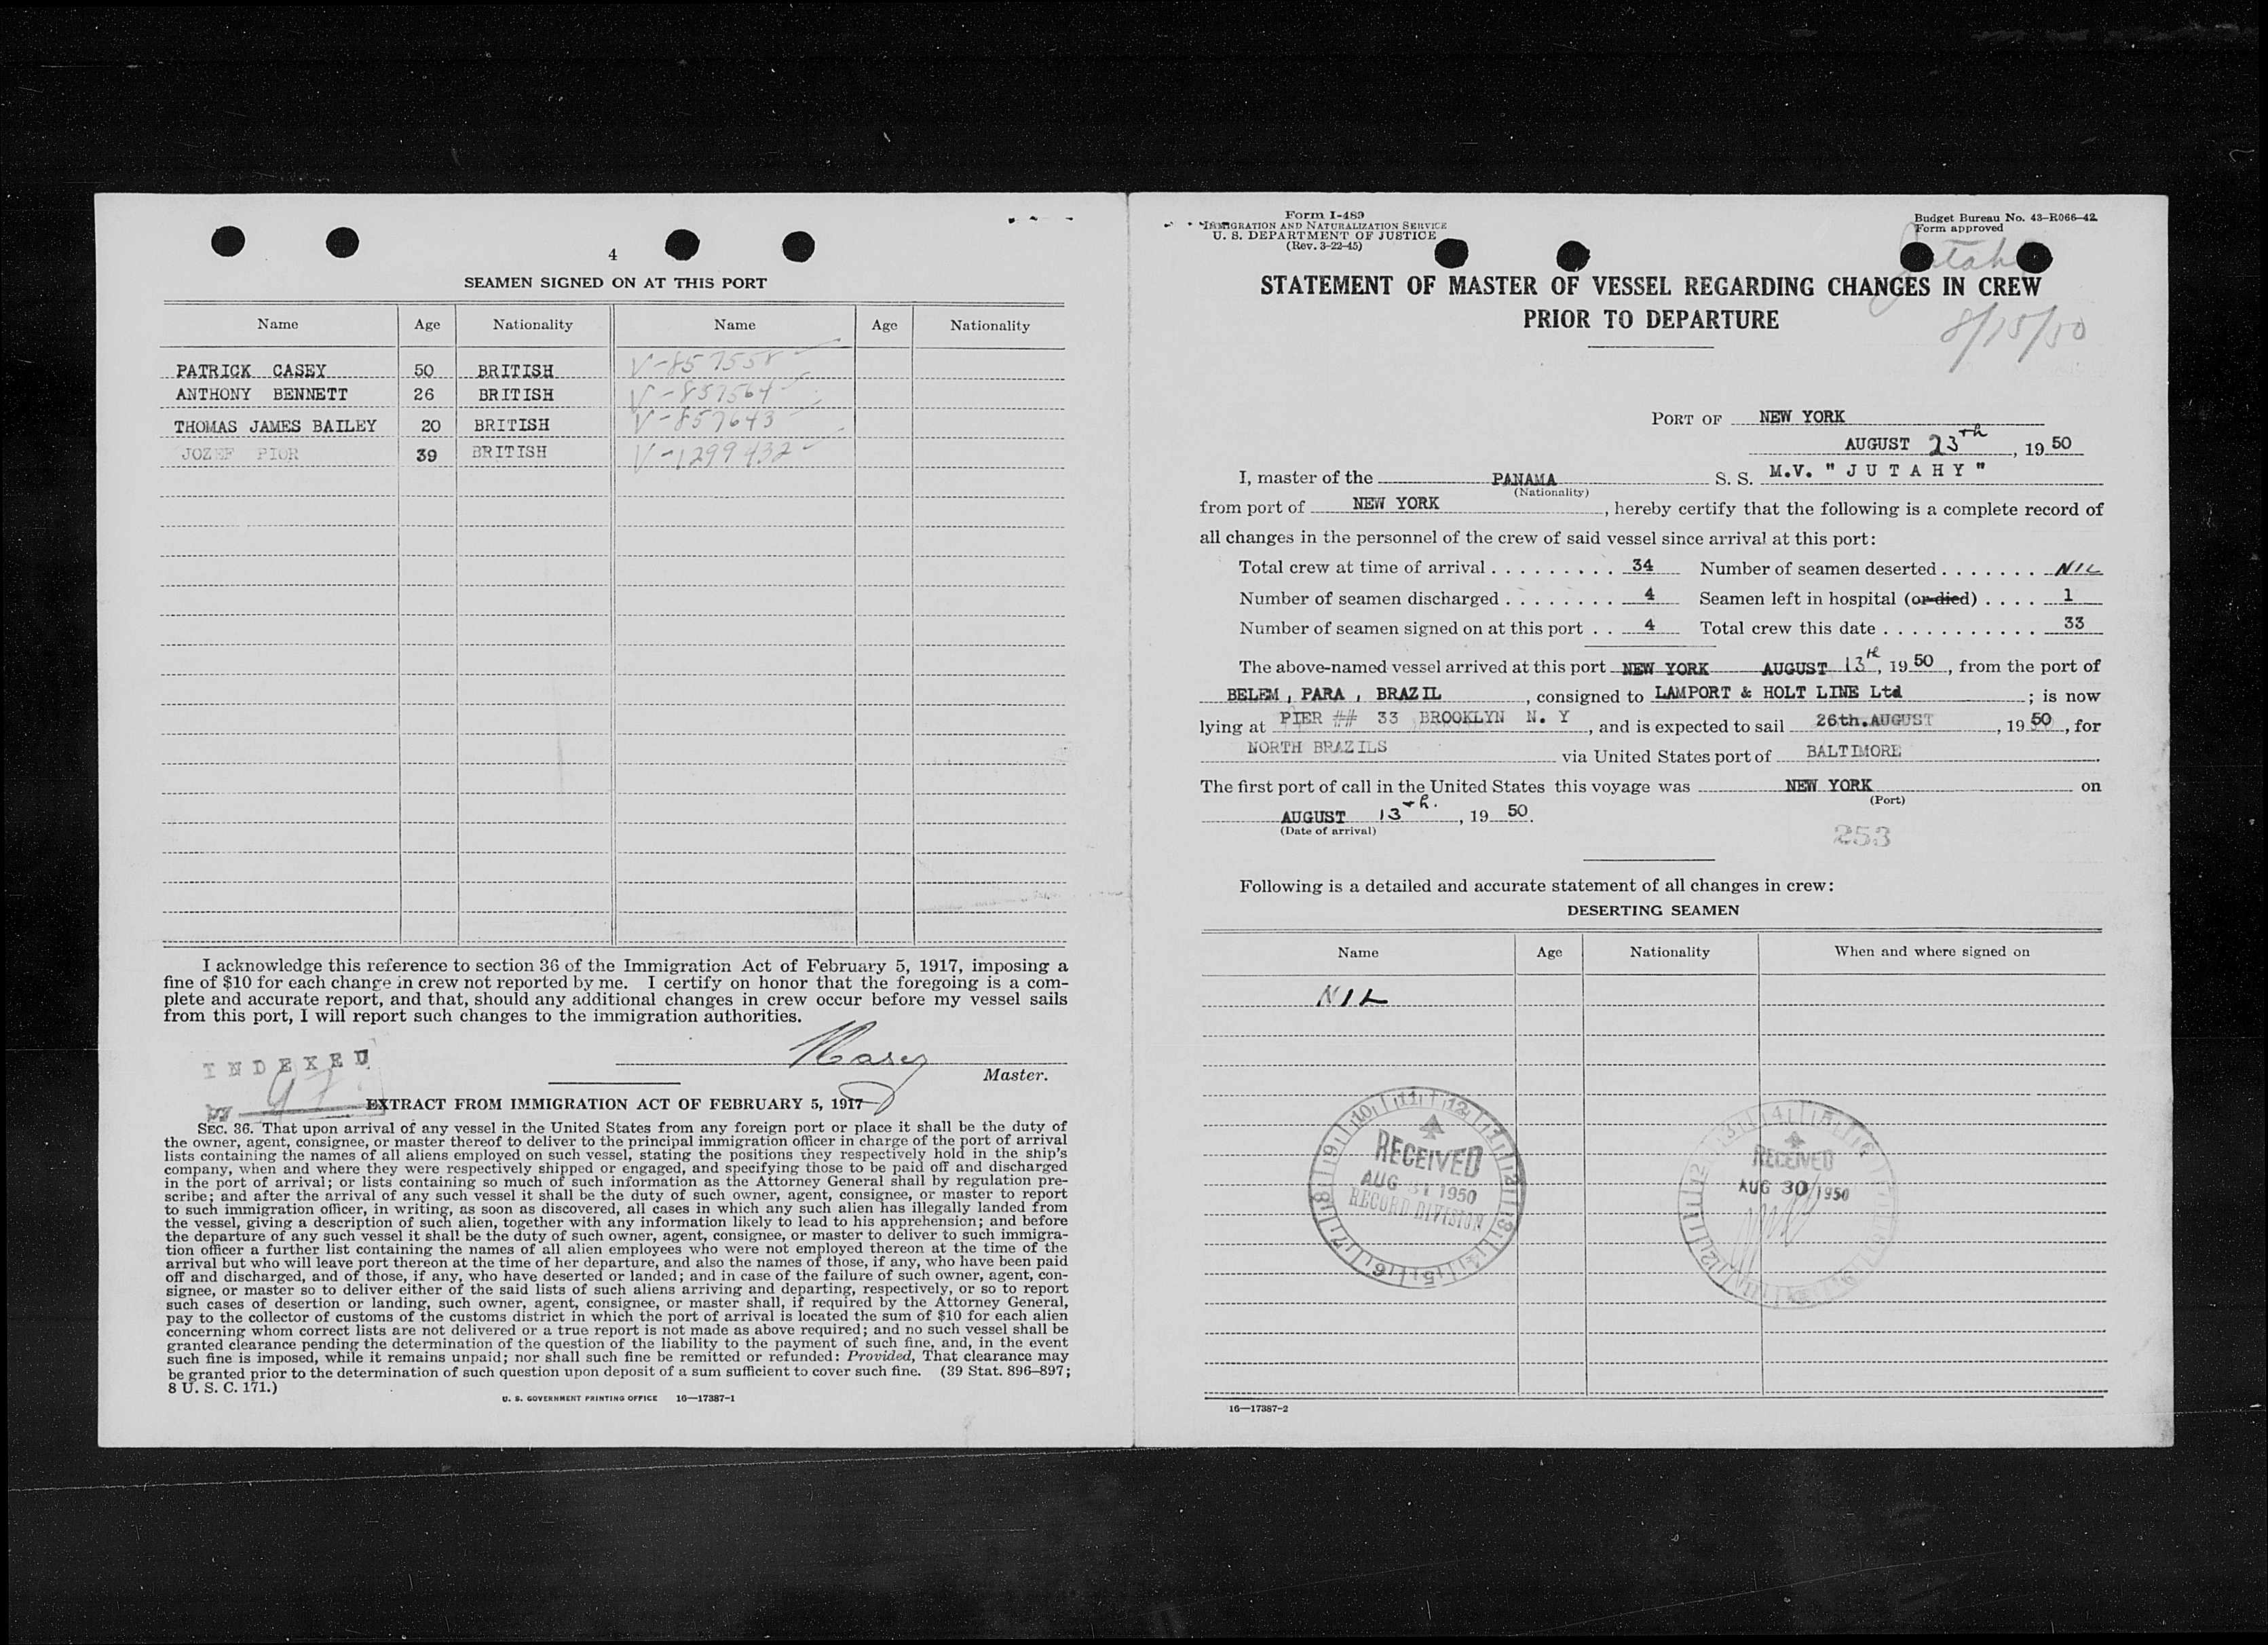 4
SEAMEN SIGNED ON AT THIS PORT
Name Age Nationality Name Age Nationality
PATRICK CASEY 50 BRITISH V-857558
ANTHONY BENNETT 26 BRITISH V-857564
THOMAS JAMES BAILEY 20 BRITISH V-857643
JOZEF PIOR 39 BRITISH V-1299432
I acknowledge this reference to section 36 of the Immigration Act of February 5, 1917, imposing a
fine of $10 for each change in crew not reported by me. I certify on honor that the foregoing is a com-
plete and accurate report, and that, should any additional changes in crew occur before my vessel sails
from this port, I will report such changes to the immigration authorities.
INDEXED
Master.
BY
EXTRACT FROM IMMIGRATION ACT OF FEBRUARY 5, 1917
SEC. 36. That upon arrival of any vessel in the United States from any foreign port or place it shall be the duty of
the owner, agent, consignee, or master thereof to deliver to the principal immigration officer in charge of the port of arrival
lists containing the names of all aliens employed on such vessel, stating the positions they respectively hold in the ship's
company, when and where they were respectively shipped or engaged, and specifying those to be paid off and discharged
in the port of arrival; or lists containing so much of such information as the Attorney General shall by regulation pre-
scribe; and after the arrival of any such vessel it shall be the duty of such owner, agent, consignee, or master to report
to such immigration officer, in writing, as soon as discovered, all cases in which any such alien has illegally landed from
the vessel, giving a description of such alien, together with any information likely to lead to his apprehension; and before
the departure of any such vessel it shall be the duty of such owner, agent, consignee, or master to deliver to such immigra-
tion officer a further list containing the names of all alien employees who were not employed thereon at the time of the
arrival but who will leave port thereon at the time of her departure, and also the names of those, if any, who have been paid
off and discharged, and of those, if any, who have deserted or landed; and in case of the failure of such owner, agent, con-
signee, or master so to deliver either of the said lists of such aliens arriving and departing, respectively, or so to report
such cases of desertion or landing, such owner, agent, consignee, or master shall, if required by the Attorney General,
pay to the collector of customs of the customs district in which the port of arrival is located the sum of $10 for each alien
concerning whom correct lists are not delivered or a true report is not made as above required; and no such vessel shall be
granted clearance pending the determination of the question of the liability to the payment of such fine, and, in the event
such fine is imposed, while it remains unpaid; nor shall such fine be remitted or refunded: Provided, That clearance may
be granted prior to the determination of such question upon deposit of a sum sufficient to cover such fine. (39 Stat. 896–897;
8 U. S. C. 171.)
U. S. GOVERNMENT PRINTING OFFICE 16—17387-1
Form I-489
IMMIGRATION AND NATURALIZATION SERVICE
U. S. DEPARTMENT OF JUSTICE
(Rev. 3-22-45)
Budget Bureau No. 43-R066-42.
Form approved
Jutahy
STATEMENT OF MASTER OF VESSEL REGARDING CHANGES IN CREW
PRIOR TO DEPARTURE
8/15/50
PORT OF NEW YORK
AUGUST 23th, 19 50
I, master of the PANAMA S. S. M.V. "JUTAHY"
(Nationality)
from port of NEW YORK, hereby certify that the following is a complete record of
all changes in the personnel of the crew of said vessel since arrival at this port:
Total crew at time of arrival 34 Number of seamen deserted NIL
Number of seamen discharged 4 Seamen left in hospital (or died) 1
Number of seamen signed on at this port 4 Total crew this date 33
The above-named vessel arrived at this port NEW YORK AUGUST 13th, 19 50, from the port of
BELEM, PARA, BRAZIL, consigned to LAMPORT & HOLT LINE Ltd; is now
lying at PIER ## 33 BROOKLYN N. Y, and is expected to sail 26th. AUGUST, 19 50, for
NORTH BRAZILS via United States port of BALTIMORE.
The first port of call in the United States this voyage was NEW YORK on
(Port)
AUGUST 13th., 19 50.
(Date of arrival)
253
Following is a detailed and accurate statement of all changes in crew:
DESERTING SEAMEN
Name Age Nationality When and where signed on
NIL
RECEIVED
AUG 31 1950
RECORD DIVISION
RECEIVED
AUG 30 1950
16—17387-2